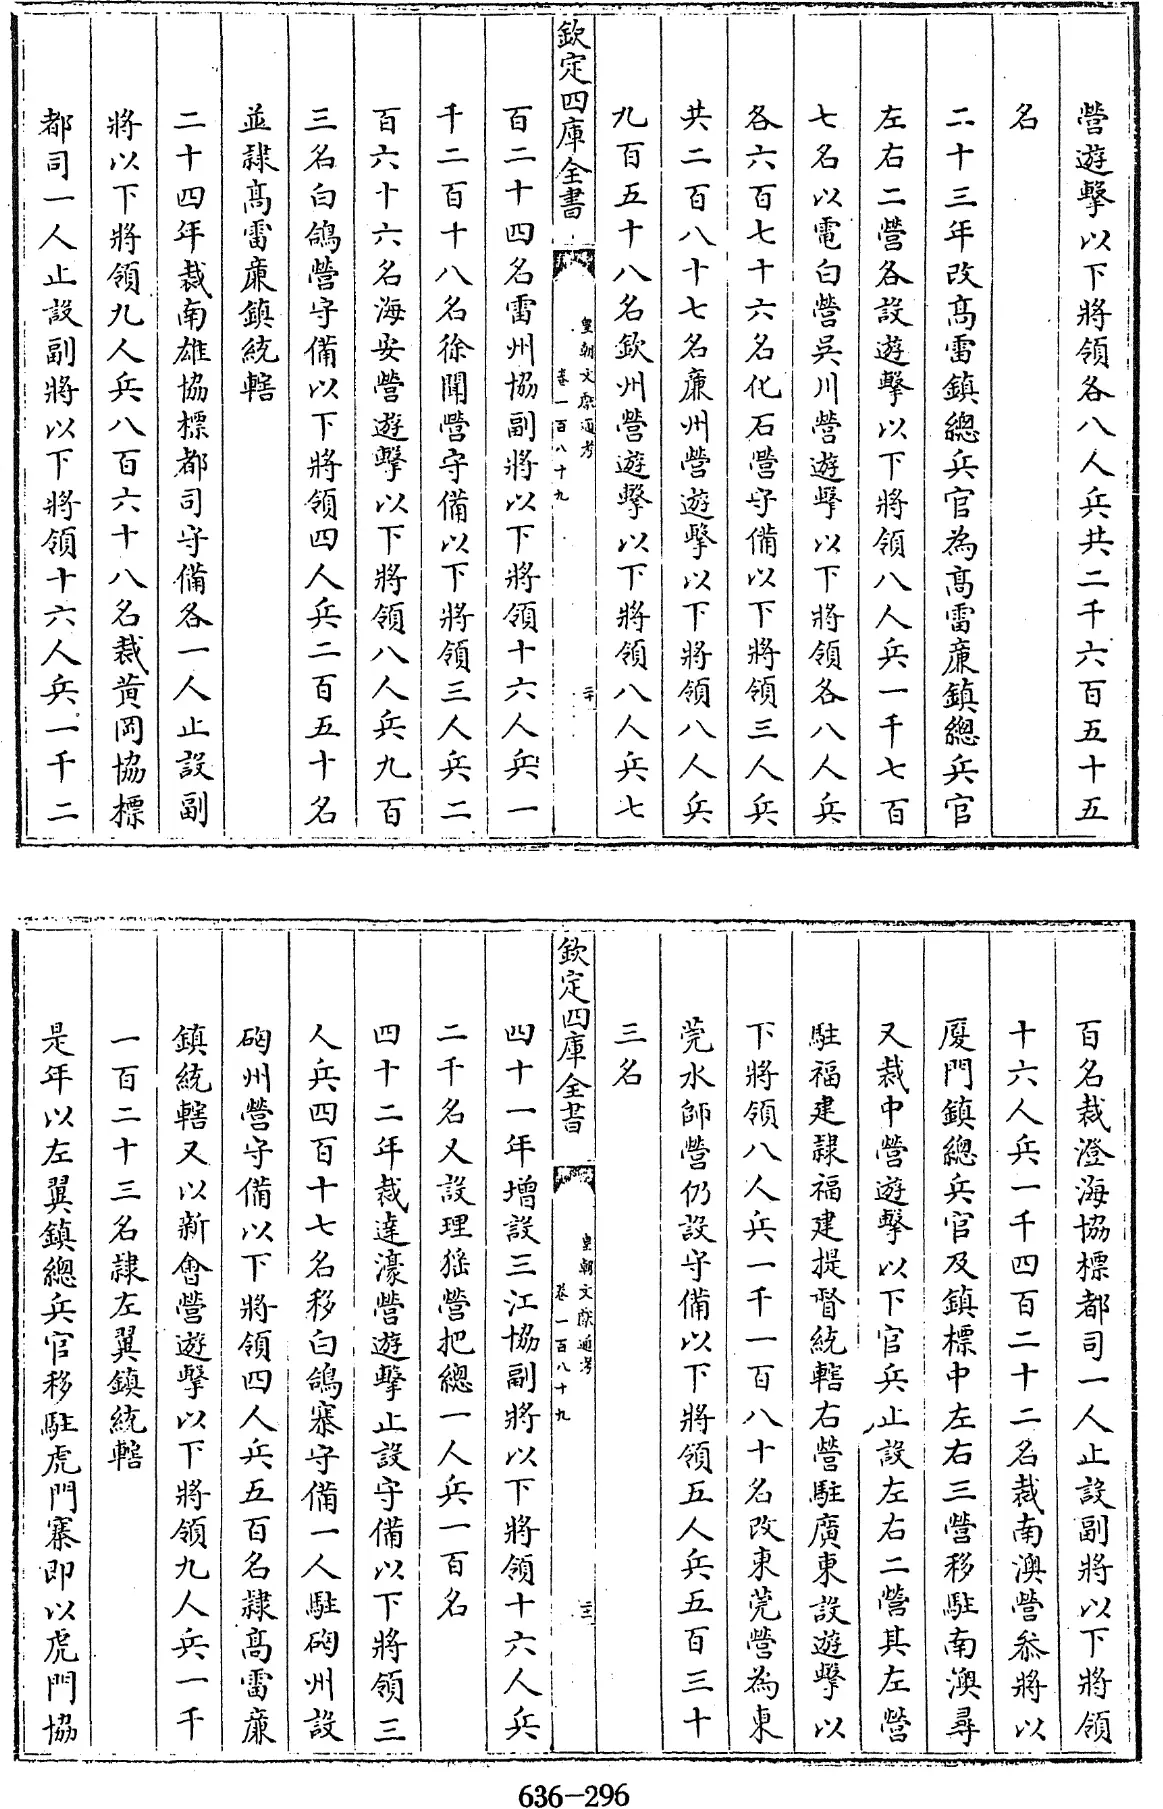 營遊擊以下將領各八人兵共二千六百五十五
名
二十三年改髙雷鎮總兵官為髙雷亷鎮總兵官
左右二營各設遊擊以下將領八人兵一千七百
七名以電白營吳川營遊擊以下將領各八人兵
各六百七十六名化石營守備以下將領三人兵
共二百八十七名亷州營遊擊以下將領八人兵
九百五十八名欽州營遊擊以下將領八人兵七
欽定四庫全書
皇朝文獻通考
卷一百八十九
二十
百二十四名雷州協副將以下將領十六人兵一
千二百十八名徐聞營守備以下將領三人兵二
百六十六名海安營遊擊以下將領八人兵九百
三名白鴿營守備以下將領四人兵二百五十名
並隷髙雷亷鎮統轄
二十四年裁南雄協標都司守備各一人止設副
將以下將領九人兵八百六十八名裁黄岡協標
都司一人止設副將以下將領十六人兵一千二
百名裁澄海協標都司一人止設副將以下將領
十六人兵一千四百二十二名裁南澳營叅將以
厦門鎮總兵官及鎮標中左右三營移駐南澳尋
又裁中營遊擊以下官兵止設左右二營其左營
駐福建隷福建提督統轄右營駐廣東設遊擊以
下將領八人兵一千一百八十名改東莞營為東
莞水師營仍設守備以下將領五人兵五百三十
三名
欽定四庫全書
皇朝文獻通考
卷一百八十九
二十一
四十一年增設三江協副將以下將領十六人兵
二千名又設理猺營把總一人兵一百名
四十二年裁達濠營遊擊止設守備以下將領三
人兵四百十七名移白鴿寨守備一人駐硇州設
硇州營守備以下將領四人兵五百名隷髙雷亷
鎮統轄又以新會營遊擊以下將領九人兵一千
一百二十三名隷左翼鎮統轄
是年以左翼鎮總兵官移駐虎門寨即以虎門協
636-296